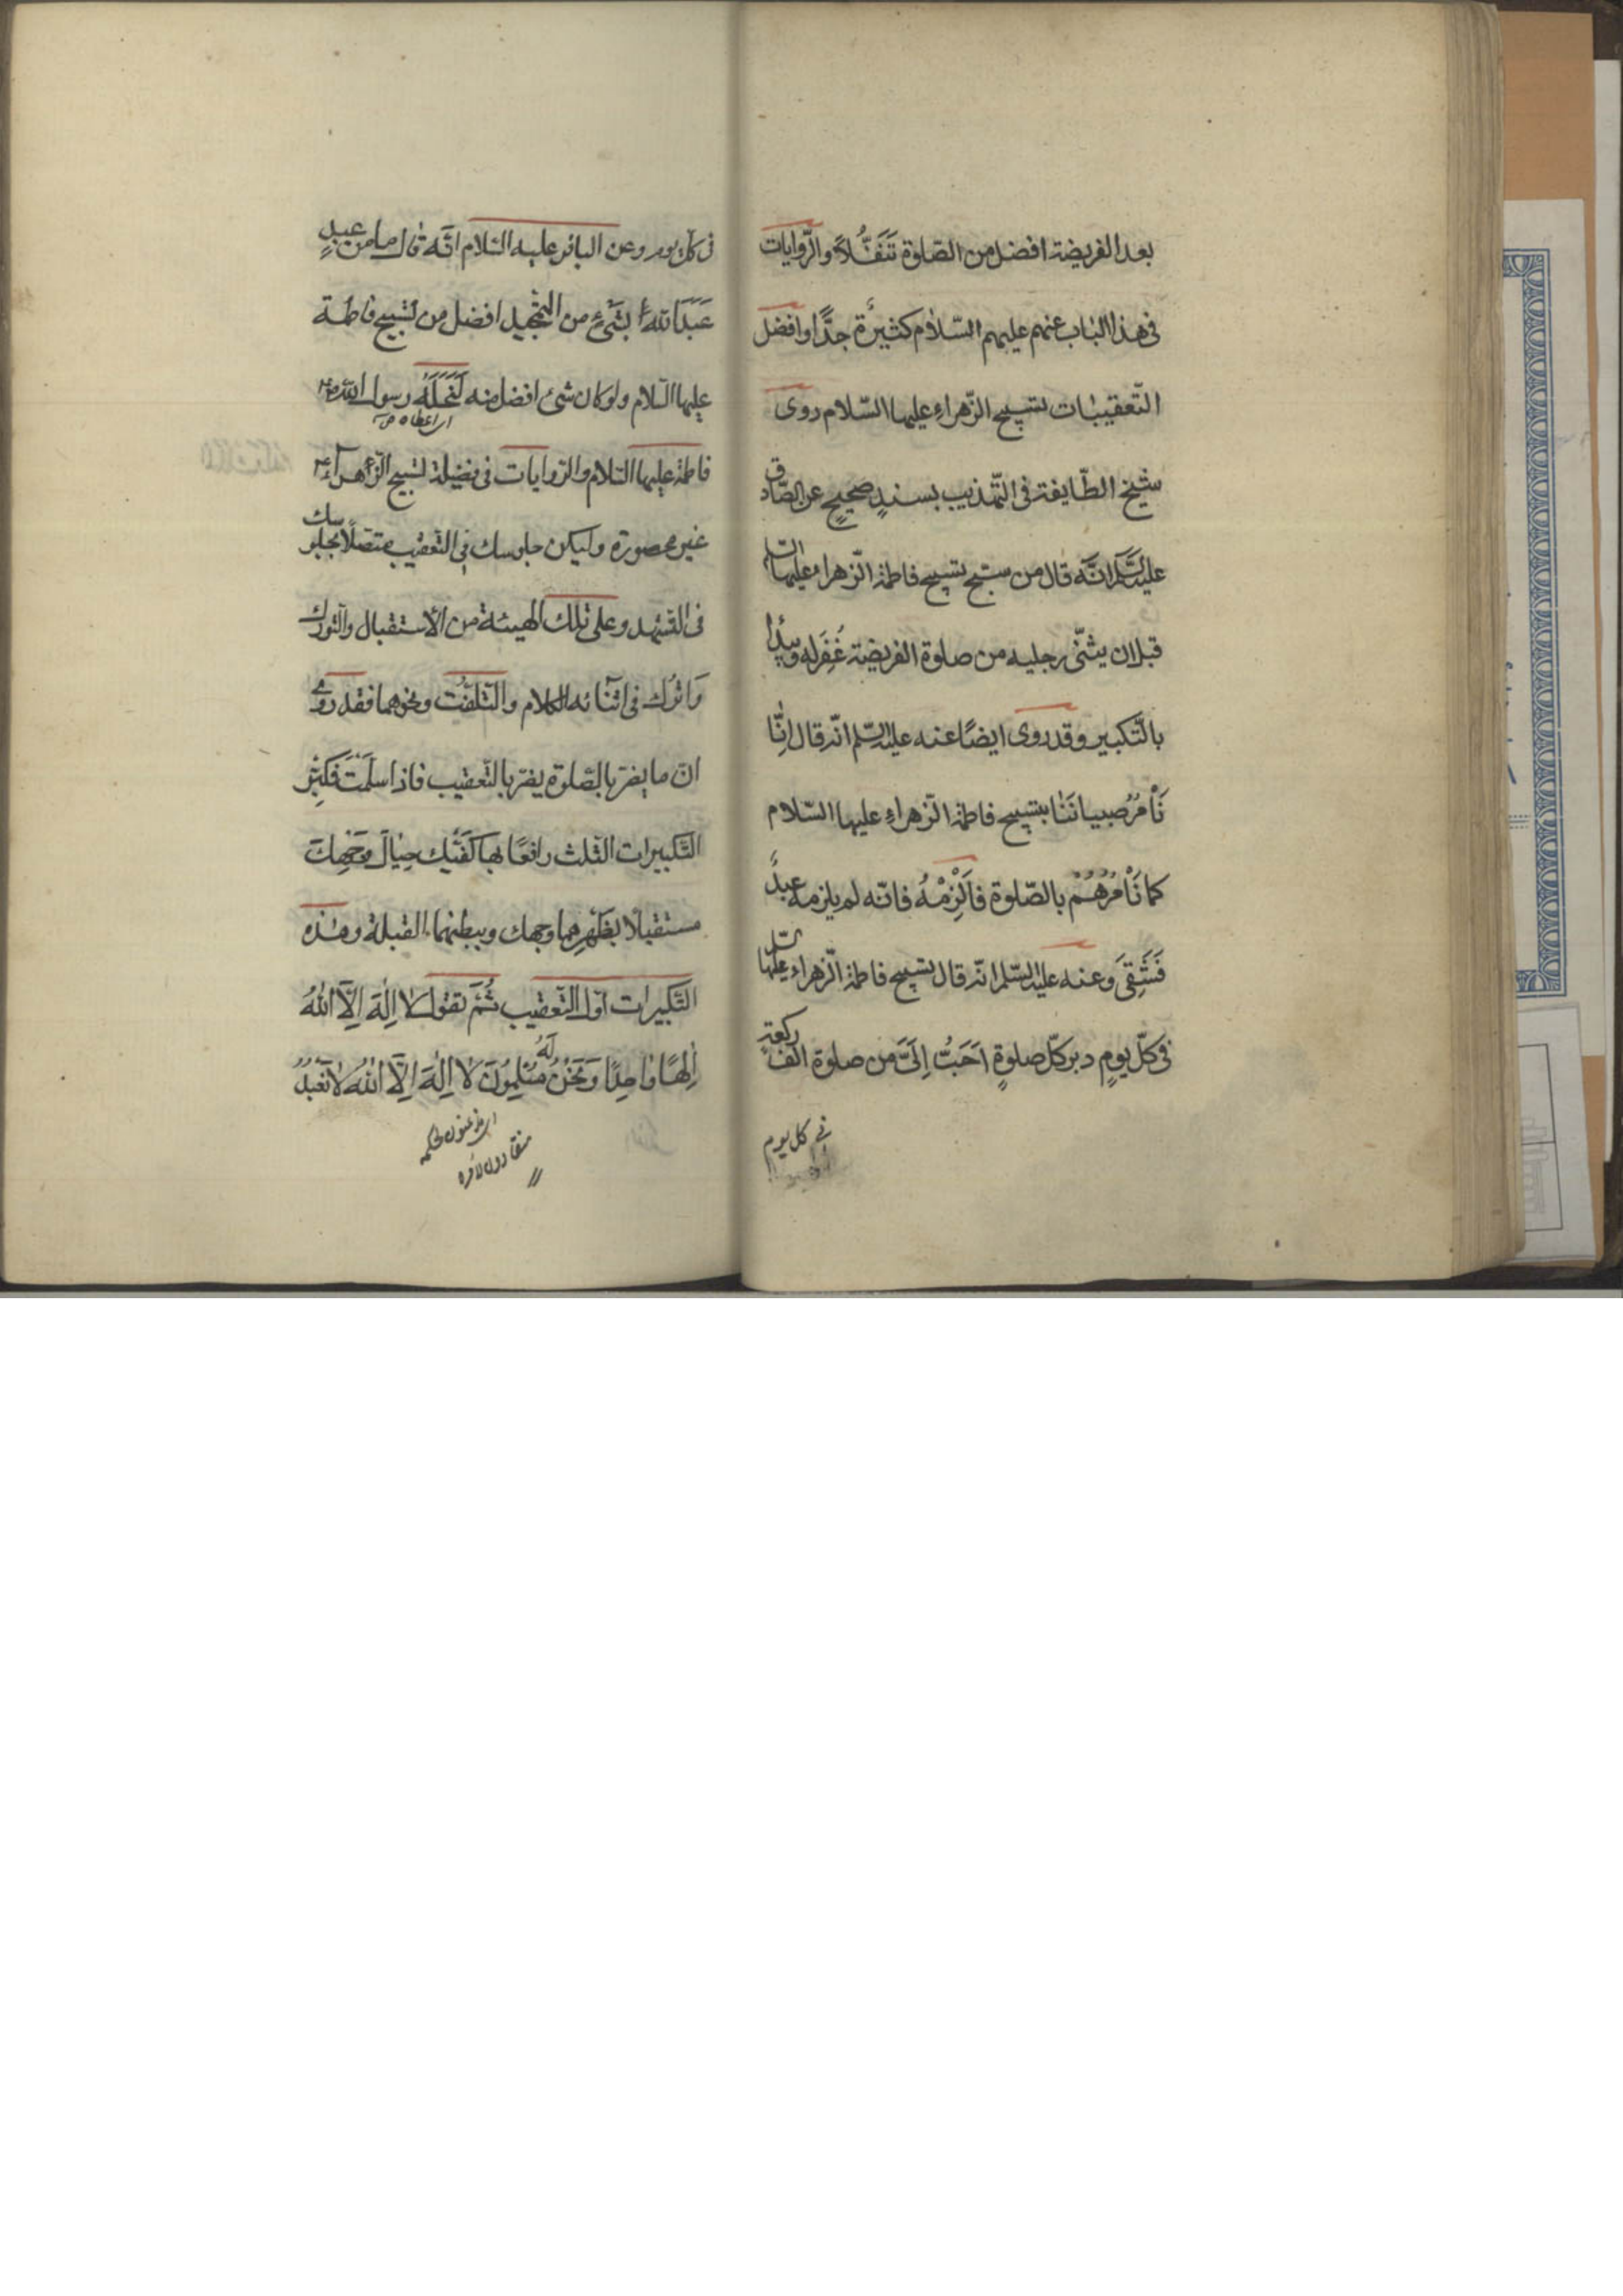 بعد الفریضة افضل من الصّلوة تَنَفُّلاً والرّوایات
فی هذا الباب عنهم علیهم السّلام کثیرة جدًّا وافضل
التّعقیبات تسبیح الزّهراءِ علیها السّلام روی
شیخ الطّایفة فی التّهذیب بسندٍ صحیحٍ عن الصّادق
علیه السّلم انّه قال من سبّح تسبیح فاطمة الزّهراء علیها السّلم
قبل ان یثنّی رجلیه من صلوة الفریضة غُفِرَ له ویبدأ
بالتّکبیر وقد روی ایضًا عنه علیه السّلم انّه قال اِنّا
نَأمُرُ صبیانَنا بتسبیح فاطمة الزّهراءِ علیها السّلام
کما نَأمُرُهُم بالصّلوة فَاَلْزِمْهُ فانّه لم یلزمه عبدٌ
فَشَقِیَ وعنه علیه السّلم انّه قال تسبیح فاطمة الزّهراء علیها السّلم
فی کلّ یومٍ دبر کلّ صلوةٍ اَحَبُّ اِلَیَّ من صلوة الف رکعةٍ
فی کل یوم
فی کلّ یوم وعن الباقر علیه السّلام انّه قال ما من عبدٍ
عَبَدَ اللهَ بشیءٍ من التّمجید افضل من تسبیح فاطمة
علیها السّلام ولو کان شیء افضل منه لَنَحَلَهُ رسول الله ص
ای اعطاه ص
فاطمة علیها السّلام والرّوایات فی فضیلة تسبیح الزّهراء ع
غیر محصورة ولیکن جلوسك فی التّعقیب متّصلًا بجلوسك
فی التّشهد وعلی تلك الهیئة من الاستقبال والتّورك
وَاترُك فی اثنائه الکلام والتّلفّت ونحوهما فقد روی
انّ ما یضرّ بالصّلوة یضرّ بالتّعقیب فاذا سلّمتَ فکبّر
التّکبیرات الثّلث رافعًا بها کفَّیك حِیالَ وَجهِكَ
مستقبلا بظَهْرِهما وجهك وببطنهما القبلة وهذه
التّکبیرات اول التّعقیب ثُمَّ تقول لا اِلٰهَ اِلَّا اللهُ
اِلٰهًا واحِدًا وَنَحْنُ لَهُ مُسْلِمُونَ لا اِلٰهَ اِلَّا اللهُ لا نَعْبُدُ